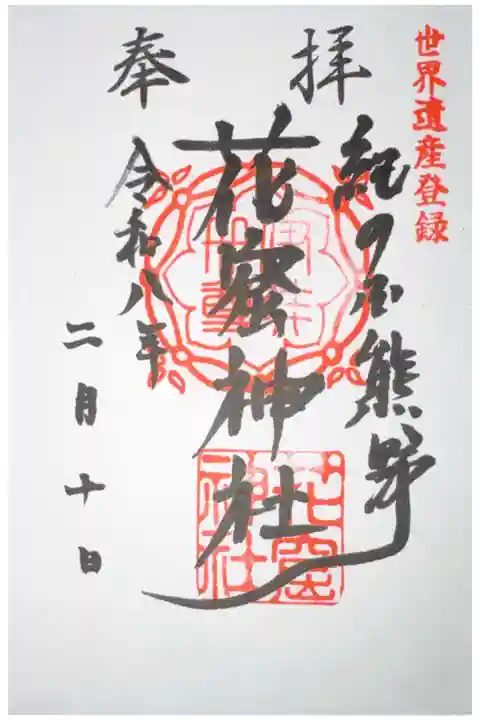 世界遺産登録
奉拝
紀の国熊野
花窟神社
令和八年
二月十日
花窟神社